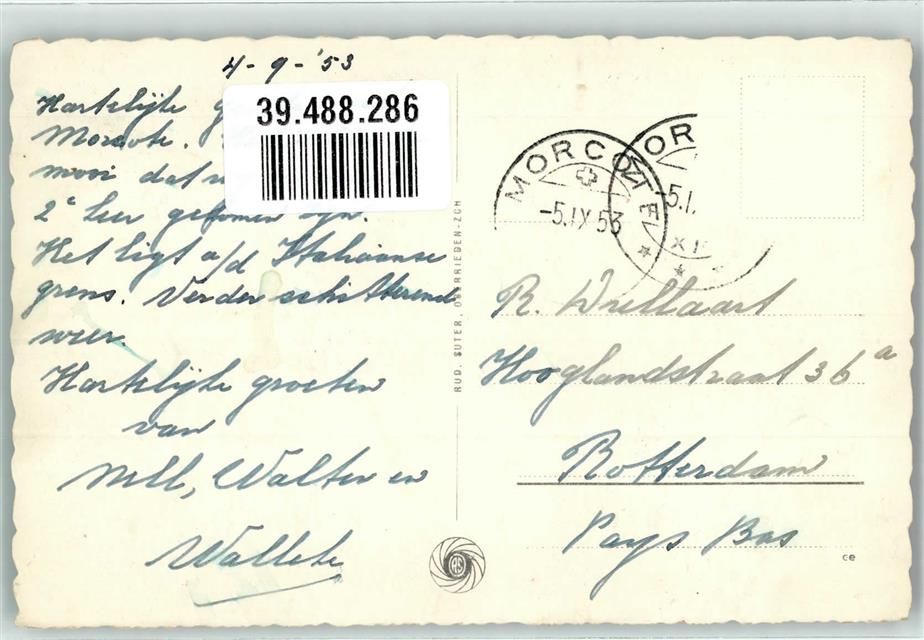 4-9-'53
Hartelijke
Morcote.
mooi dat
2e keer gekomen zijn.
Het ligt a/d Italiaanse
grens. Verder schitterend
weer.
Hartelijke groeten
van
Nell, Walter en
39.488.286
RUD. SUTER, OBERRIEDEN-ZCH
RS
MORCOTE
-5.IX 53
MOR
-5.I.
R.
Hooglandstraat 36a
Rotterdam
Pays Bas
ce